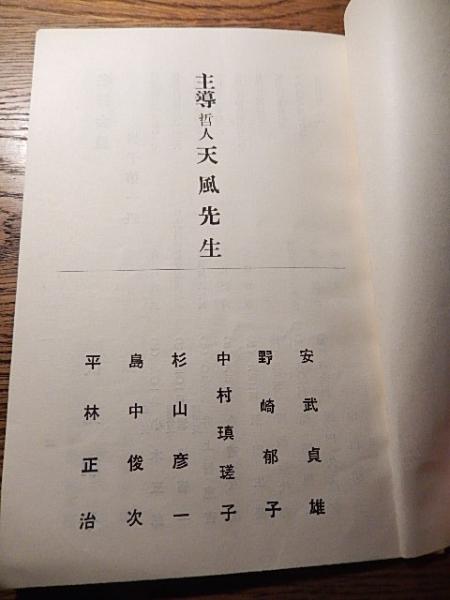 主導哲人天風先生
安武貞雄
野崎郁子
中村瑱瑳子
杉山彦一
島中俊次
平林正治